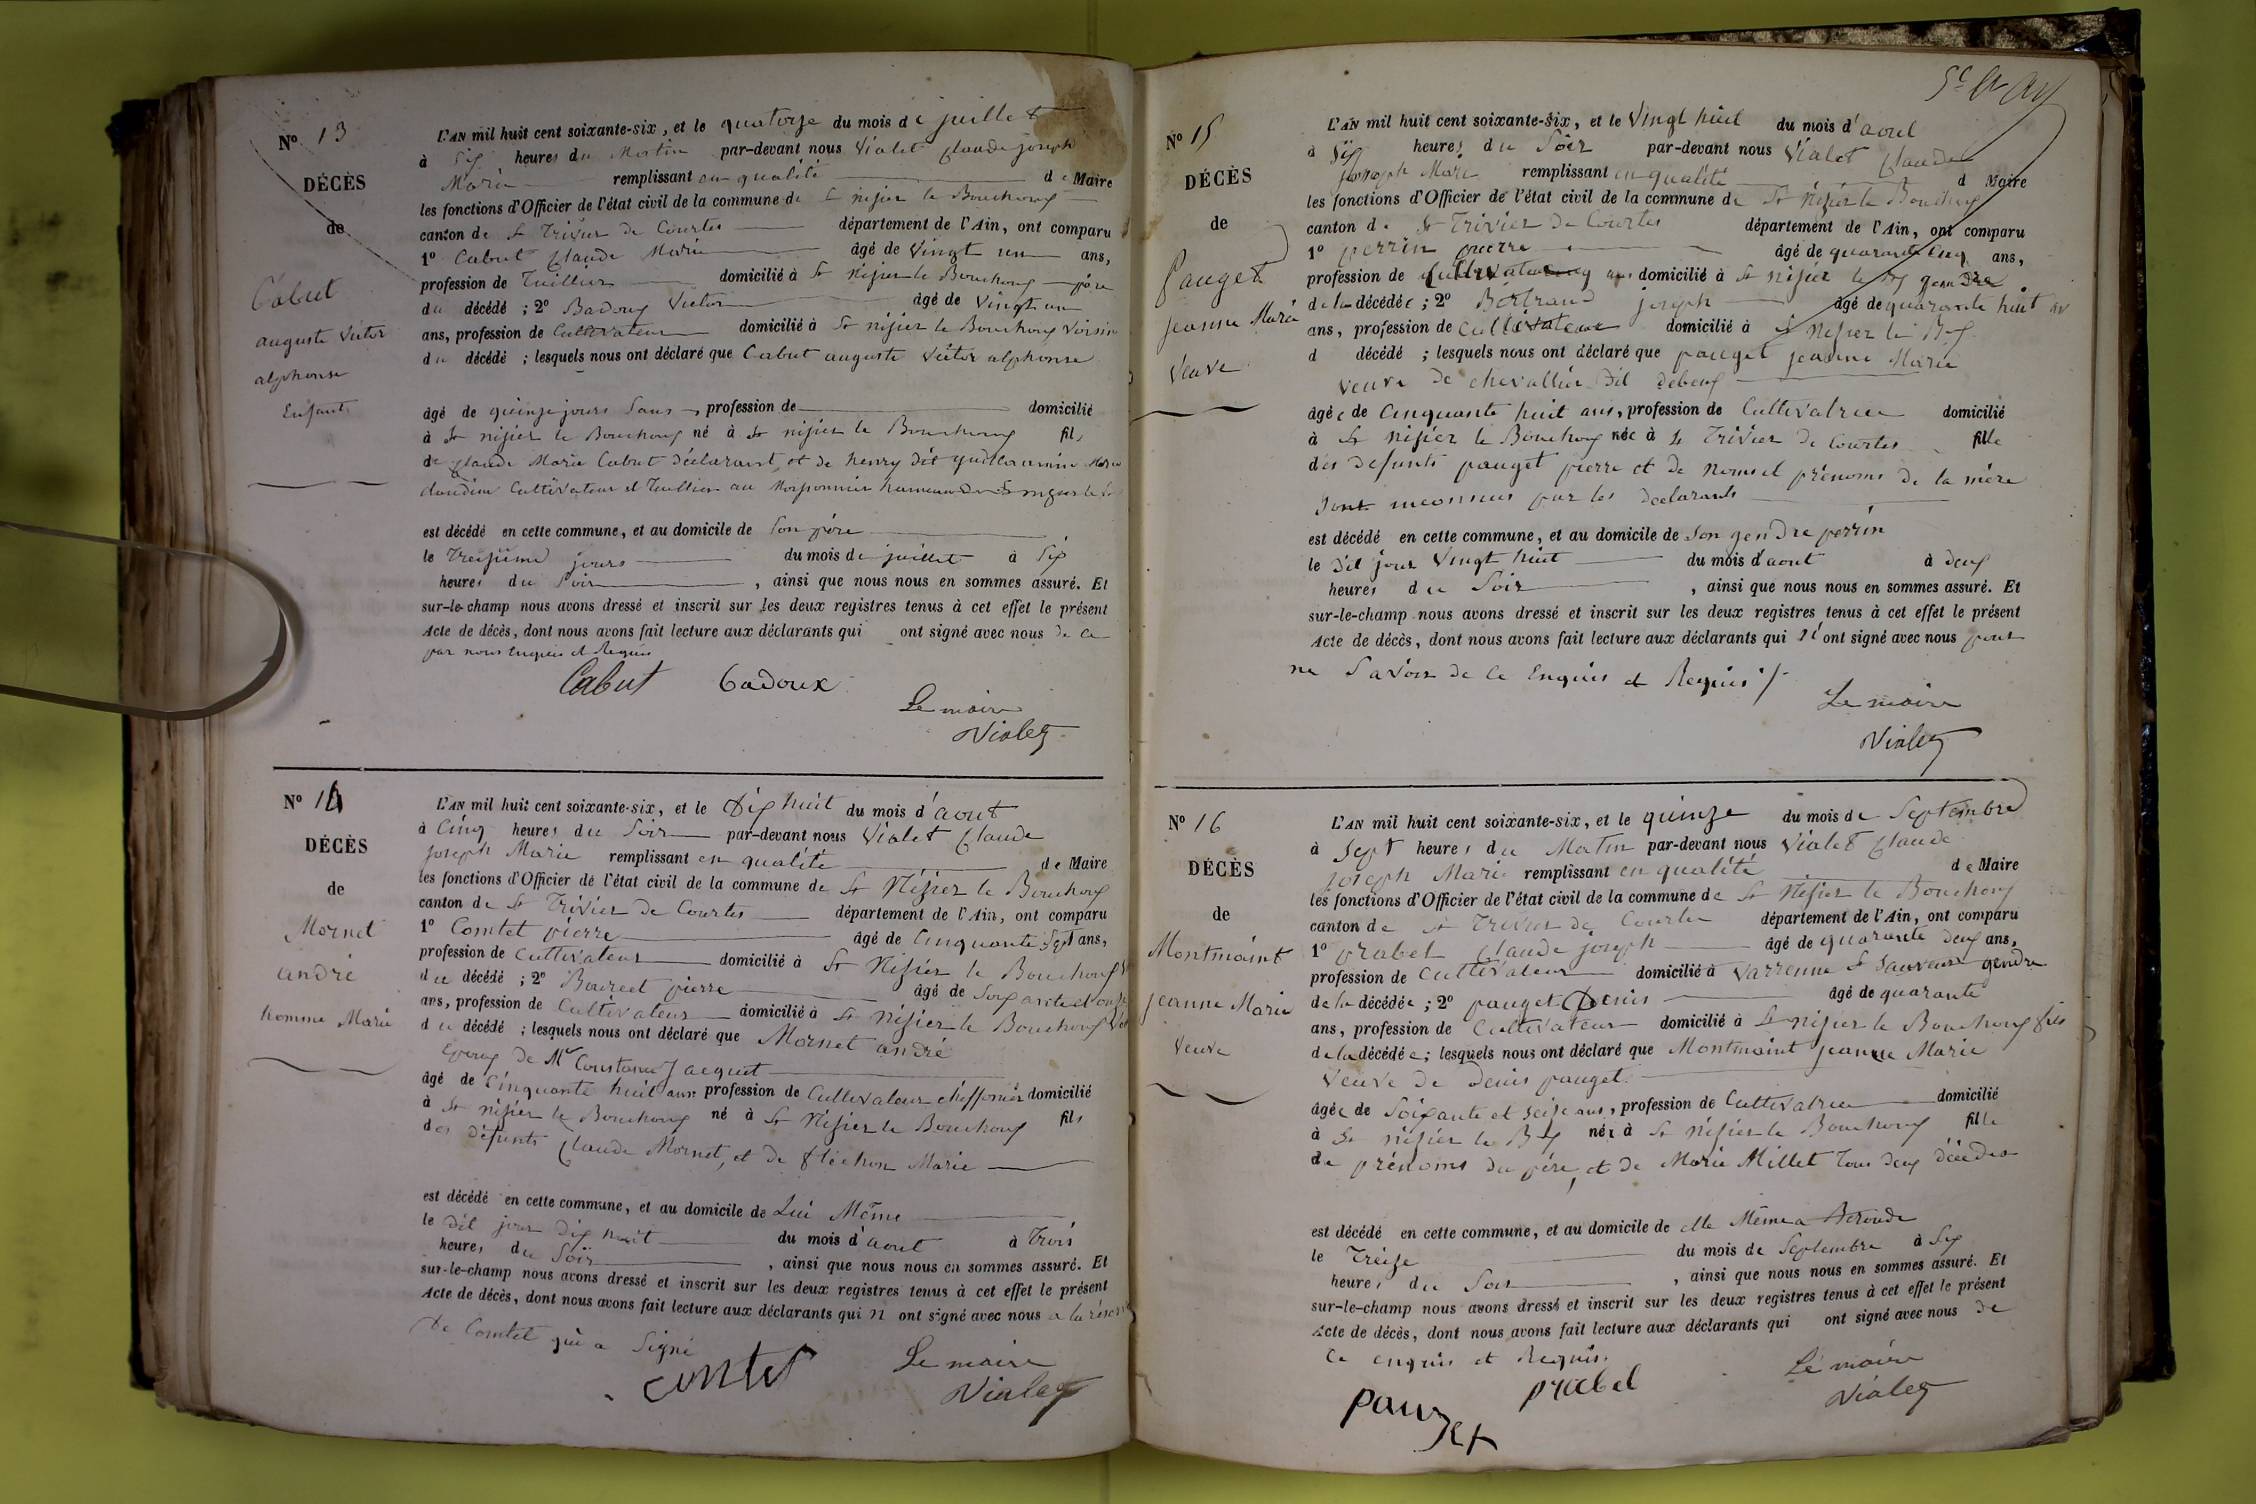 N° 13
DÉCÈS
de
Cabut
auguste Victor
alphonse
Enfant
L'AN mil huit cent soixante-six, et le quatorze du mois de juillet
à Six heures du Matin par-devant nous Vialet Claude joseph
Marie remplissant en qualité de Maire
les fonctions d'Officier de l'état civil de la commune de St nizier le Bouchoux
canton de St Trivier de Courtes département de l'Ain, ont comparu
1° Cabut Claude Marie âgé de Vingt un ans,
profession de Tuillier domicilié à St Nizier le Bouchoux père
du décédé ; 2° Badoux Victor âgé de Vingt un
ans, profession de Cultivateur domicilié à St nizier le Bouchoux Voisin
du décédé ; lesquels nous ont déclaré que Cabut auguste Victor alphonse
âgé de quinze jours Sans profession de domicilié
à St nizier le Bouchoux né à St nizier le Bouchoux fils
de Claude Marie Cabut déclarant, et de henry dit Guillaumin Marie
claudine Cultivateur et Tuillier au hameau
est décédé en cette commune, et au domicile de Son père
le Treizième jours du mois de juillet à Six
heures du Soir, ainsi que nous nous en sommes assuré. Et
sur-le-champ nous avons dressé et inscrit sur les deux registres tenus à cet effet le présent
Acte de décès, dont nous avons fait lecture aux déclarants qui ont signé avec nous de ce
par nous Enquis et Requis
Cabut badoux
Le maire
Vialet
N° 14
DÉCÈS
de
Mornet
andré
homme Marié
L'AN mil huit cent soixante-six, et le Dix huit du mois d'aout
à Cinq heures du Soir par-devant nous Vialet Claude
joseph Marie remplissant en qualité de Maire
les fonctions d'Officier de l'état civil de la commune de St Nizier le Bouchoux
canton de St Trivier de Courtes département de l'Ain, ont comparu
1° Comtet pierre âgé de Cinquante Sept ans,
profession de Cultivateur domicilié à St Nizier le Bouchoux
du décédé ; 2° Bourcet pierre âgé de Soixante et onze
ans, profession de Cultivateur domicilié à St Nizier le Bouchoux
du décédé ; lesquels nous ont déclaré que Mornet andré
Epoux de Constance Jacquet
âgé de Cinquante huit ans profession de Cultivateur chiffonier domicilié
à St nizier le Bouchoux né à St Nizier le Bouchoux fils
des défunts Claude Mornet, et de fléchon Marie
est décédé en cette commune, et au domicile de Lui Même
le dit jour Dix huit du mois d'aout à Trois
heures du Soir, ainsi que nous nous en sommes assuré. Et
sur-le-champ nous avons dressé et inscrit sur les deux registres tenus à cet effet le présent
Acte de décès, dont nous avons fait lecture aux déclarants qui n ont signé avec nous a la réserve
De Comtet qui a Signé
comtet
Le maire
Vialet
N° 15
DÉCÈS
de
Pauget
jeanne Marie
Veuve
L'AN mil huit cent soixante-six, et le Vingt huit du mois d'aout
à Six heures du Soir par-devant nous Vialet Claude
joseph Marie remplissant en qualité d Maire
les fonctions d'Officier de l'état civil de la commune de St Nizier le Bouchoux
canton de St Trivier de Courtes département de l'Ain, ont comparu
1° perrin pierre âgé de quarante Cinq ans,
profession de Cultivateur domicilié à St nizier le Bx gendre
de la décédée ; 2° Bertrand joseph âgé de quarante huit
ans, profession de Cultivateur domicilié à St nizier le Bx
d décédé ; lesquels nous ont déclaré que pauget jeanne Marie
Veuve de chevallier dit debeuf
âgée de Cinquante huit ans, profession de Cultivatrice domicilié
à St nizier le Bouchoux née à St Trivier de Courtes fille
des defunts pauget pierre et de noms et prénoms de la mère
Sont inconnus par les declarants
est décédé en cette commune, et au domicile de son gendre perrin
le dit jour Vingt huit du mois d'aout à deux
heures du Soir, ainsi que nous nous en sommes assuré. Et
sur-le-champ nous avons dressé et inscrit sur les deux registres tenus à cet effet le présent
Acte de décès, dont nous avons fait lecture aux déclarants qui n'ont signé avec nous pour
ne Savoir de ce Enquis et Requis
Le maire
Vialet
N° 16
DÉCÈS
de
Montmaint
jeanne Marie
Veuve
L'AN mil huit cent soixante-six, et le quinze du mois de Septembre
à Sept heures du Matin par-devant nous Vialet Claude
joseph Marie remplissant en qualité de Maire
les fonctions d'Officier de l'état civil de la commune de St Nizier le Bouchoux
canton de St Trivier de Courtes département de l'Ain, ont comparu
1° prabel Claude joseph âgé de quarante deux ans,
profession de Cultivateur domicilié à Varrenne St Sauveur gendre
de la décédée ; 2° pauget Denis âgé de quarante
ans, profession de Cultivateur domicilié à St nizier le Bouchoux fils
de la décédée ; lesquels nous ont déclaré que Montmaint jeanne Marie
Veuve de Denis pauget
âgée de Soixante et seize ans, profession de Cultivatrice domicilié
à St nizier le Bx née à St Nizier le Bouchoux fille
de prénoms du père, et de Marie Millet Tous deux décédés
est décédé en cette commune, et au domicile de elle Même a
le Treize du mois de Septembre à Six
heures du Soir, ainsi que nous nous en sommes assuré. Et
sur-le-champ nous avons dressé et inscrit sur les deux registres tenus à cet effet le présent
Acte de décès, dont nous avons fait lecture aux déclarants qui ont signé avec nous de
ce enquis et Requis
pauget prabel
Le maire
Vialet